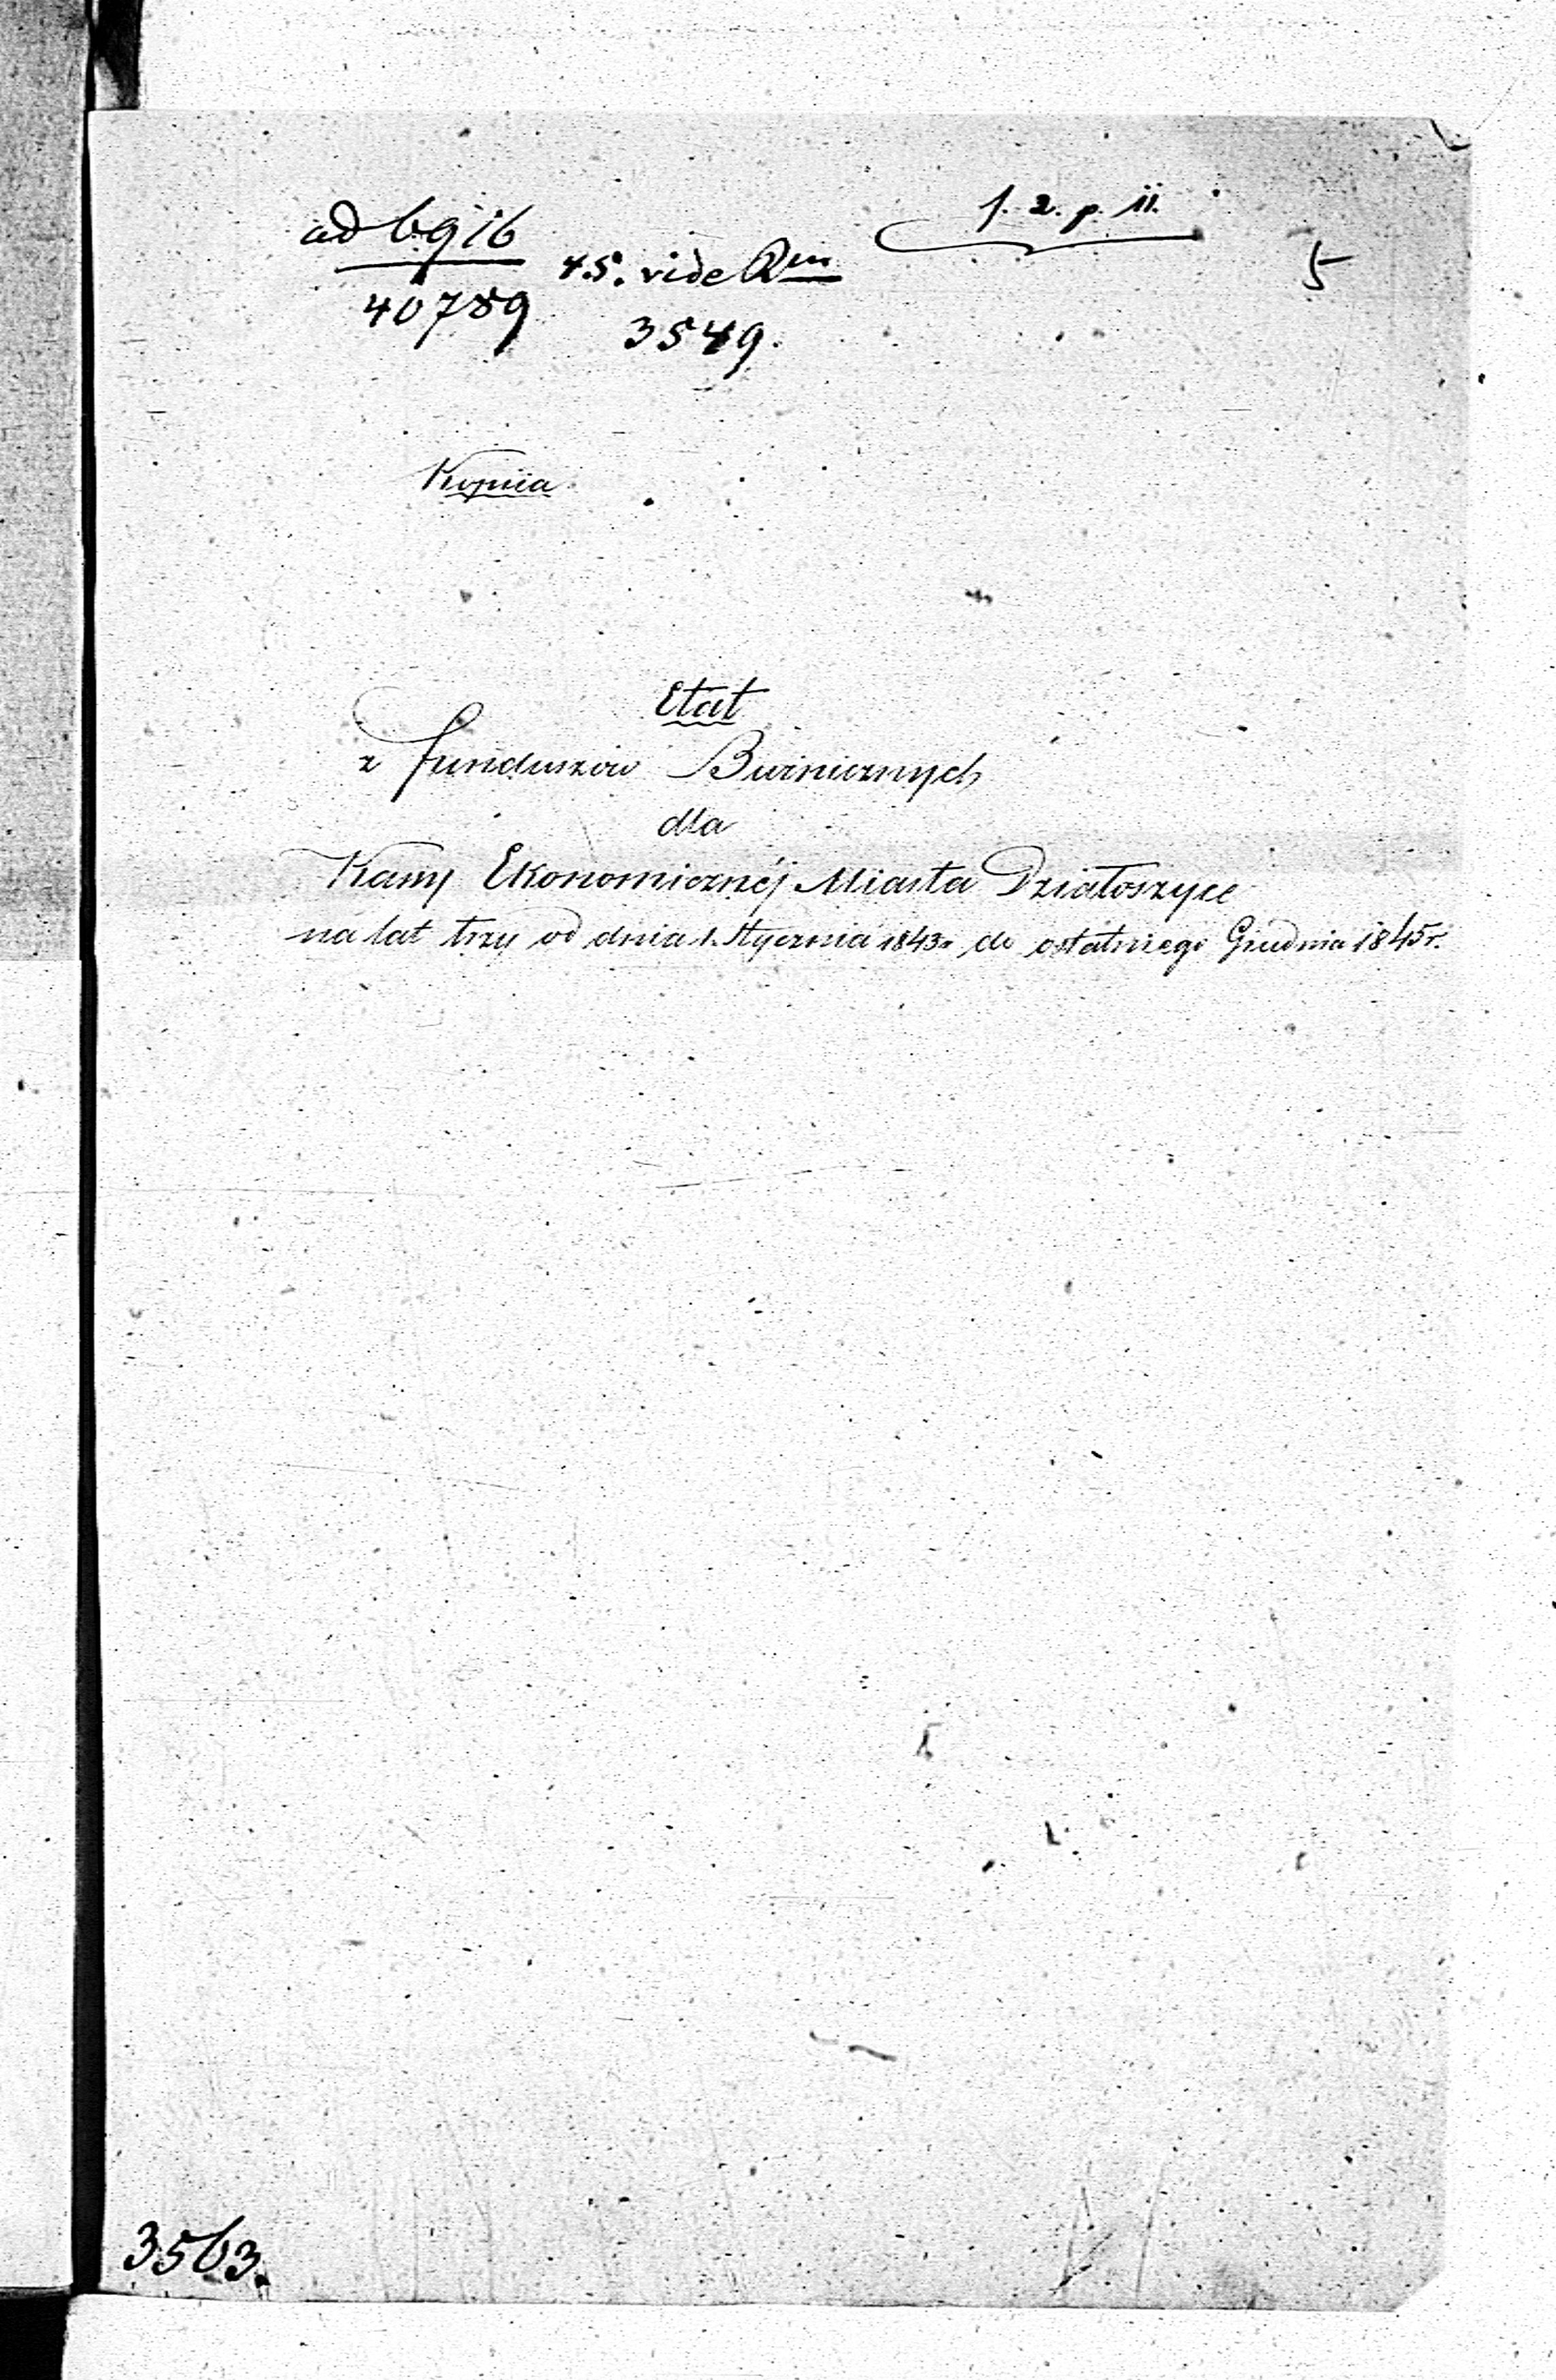 ad 6916
1. 2. p. 11.
5
45. vide
40789
3549.
Kopiia
Etat
z funduszów Bużnicznych
dla
Kassy Ekonomicznéj Miasta Działoszyce
na lat trzy od dnia 1. Stycznia 1843r. do ostatniego Grudnia 1845r.
3563.